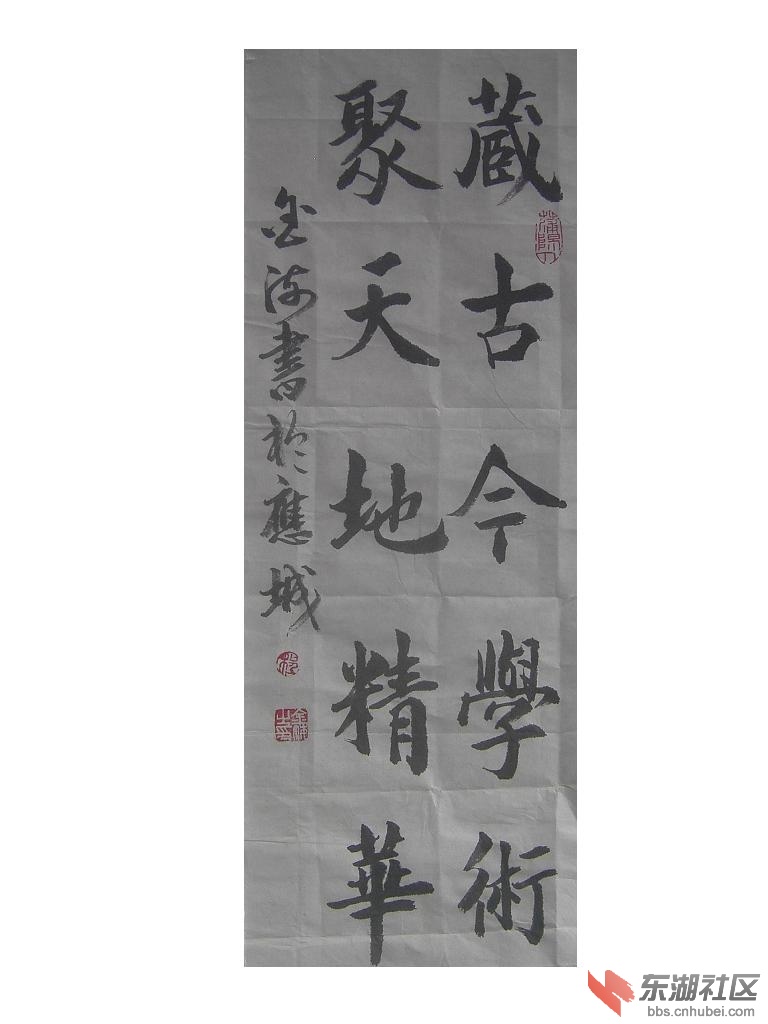 蔵古今學術
聚天地精華
金海書於應城
东湖社区
bbs.cnhubei.com